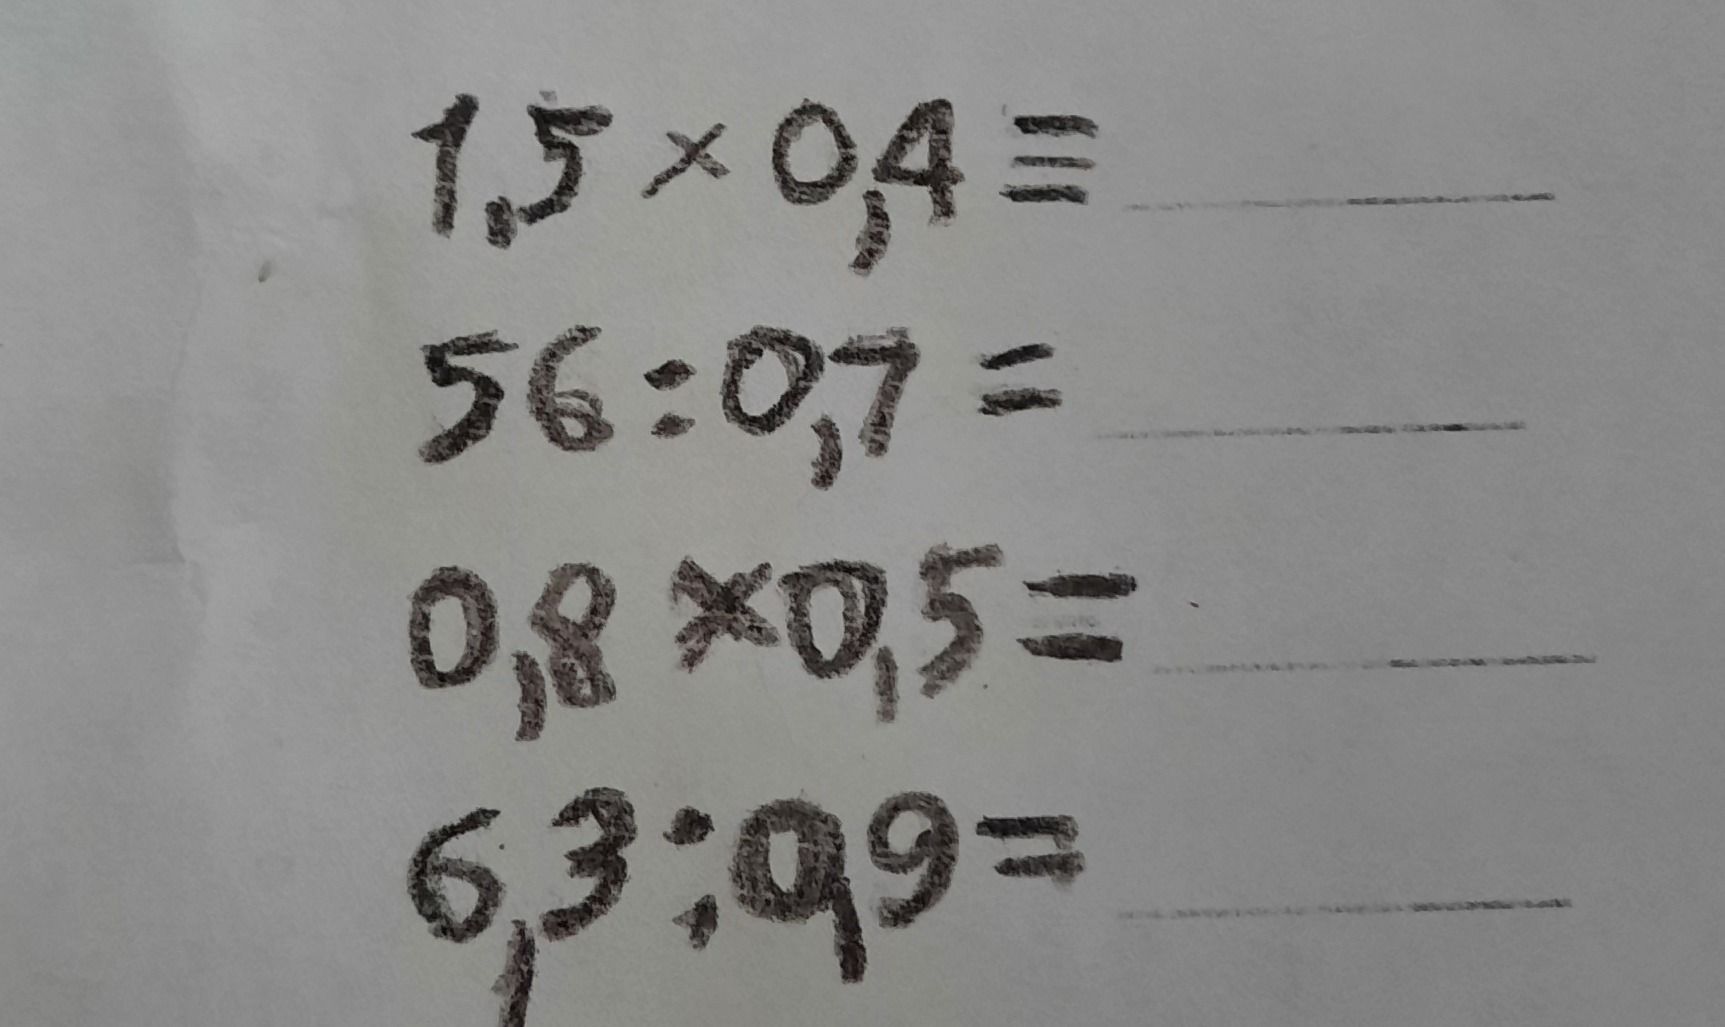 1,5 × 0,4 ≡
56 : 0,7 =
0,8 × 0,5 =
6,3 : 0,9 =